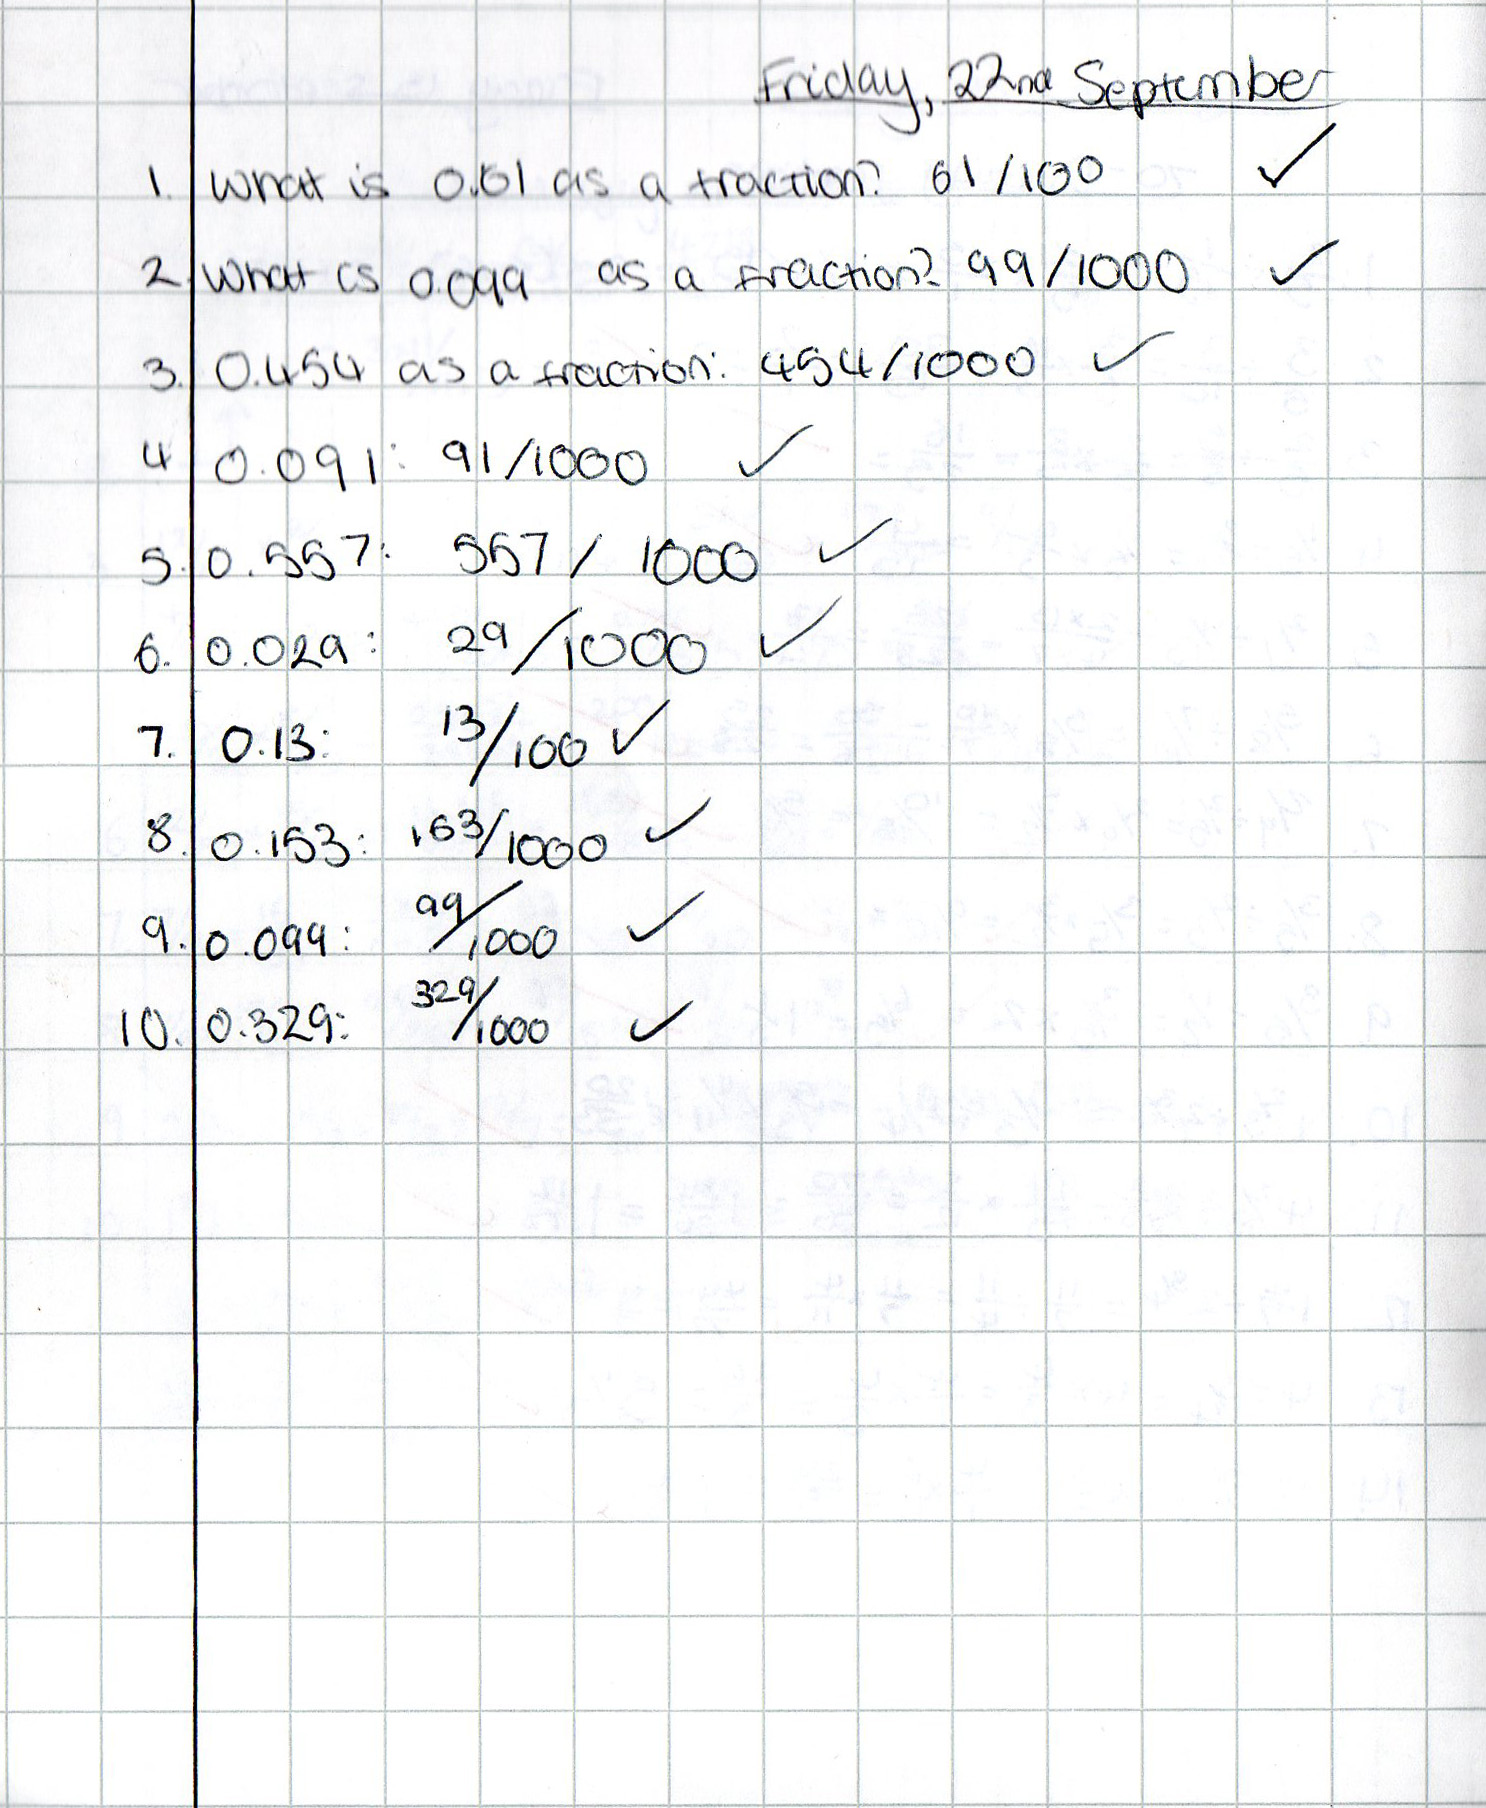 Friday, 22nd September
1. What is 0.61 as a fraction? 61/100 ✓
2. What is 0.099 as a fraction? 99/1000 ✓
3. 0.454 as a fraction: 454/1000 ✓
4 0.091: 91/1000 ✓
5. 0.557: 557/1000 ✓
6. 0.029: 29/1000 ✓
7. 0.13: 13/100 ✓
8. 0.153: 153/1000 ✓
9. 0.099: 99/1000 ✓
10. 0.329: 329/1000 ✓